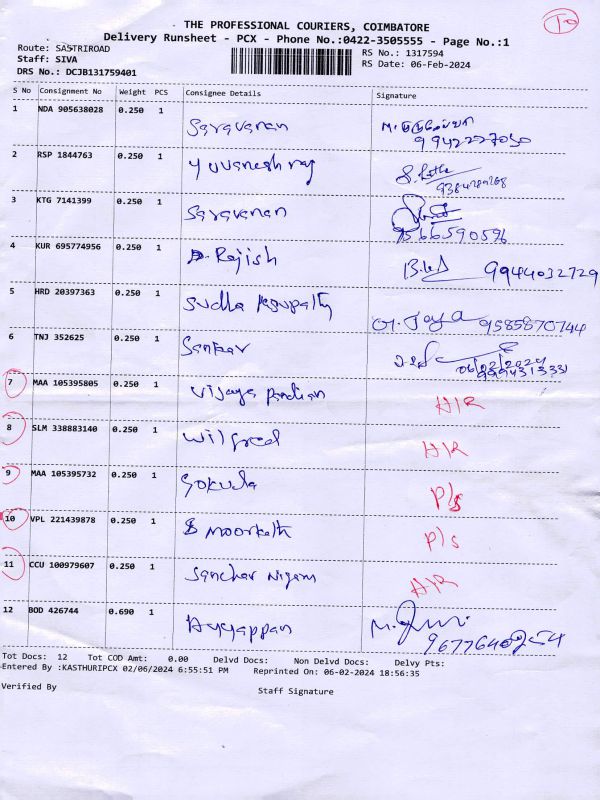 THE PROFESSIONAL COURIERS, COIMBATORE
Delivery Runsheet - PCX - Phone No.:0422-3505555 - Page No.:1
Route: SASTRIROAD
RS No.: 1317594
Staff: SIVA
RS Date: 06-Feb-2024
DRS No.: DCJB131759401
S No Consignment No Weight PCS Consignee Details Signature
1 NDA 905638028 0.250 1 Saravanan
9942227030
2 RSP 1844763 0.250 1 Yuvaneshraj
9384289268
3 KTG 7141399 0.250 1 Saravanan
9566590596
4 KUR 695774956 0.250 1 D. Rajish 9944032729
5 HRD 20397363 0.250 1 Sudha 9585870744
6 TNJ 352625 0.250 1 Sankar
06/02/2024
7 MAA 105395805 0.250 1 Vijaya Pandian A/R
8 SLM 338883140 0.250 1 Wilfred A/R
9 MAA 105395732 0.250 1 Gokula P/s
10 VPL 221439878 0.250 1 P/s
11 CCU 100979607 0.250 1 Sanchar Nigam A/R
12 BOD 426744 0.690 1 Ayyappan
Tot Docs: 12 Tot COD Amt: 0.00 Delvd Docs: Non Delvd Docs: Delvy Pts:
Entered By :KASTHURIPCX 02/06/2024 6:55:51 PM Reprinted On: 06-02-2024 18:56:35
Verified By Staff Signature